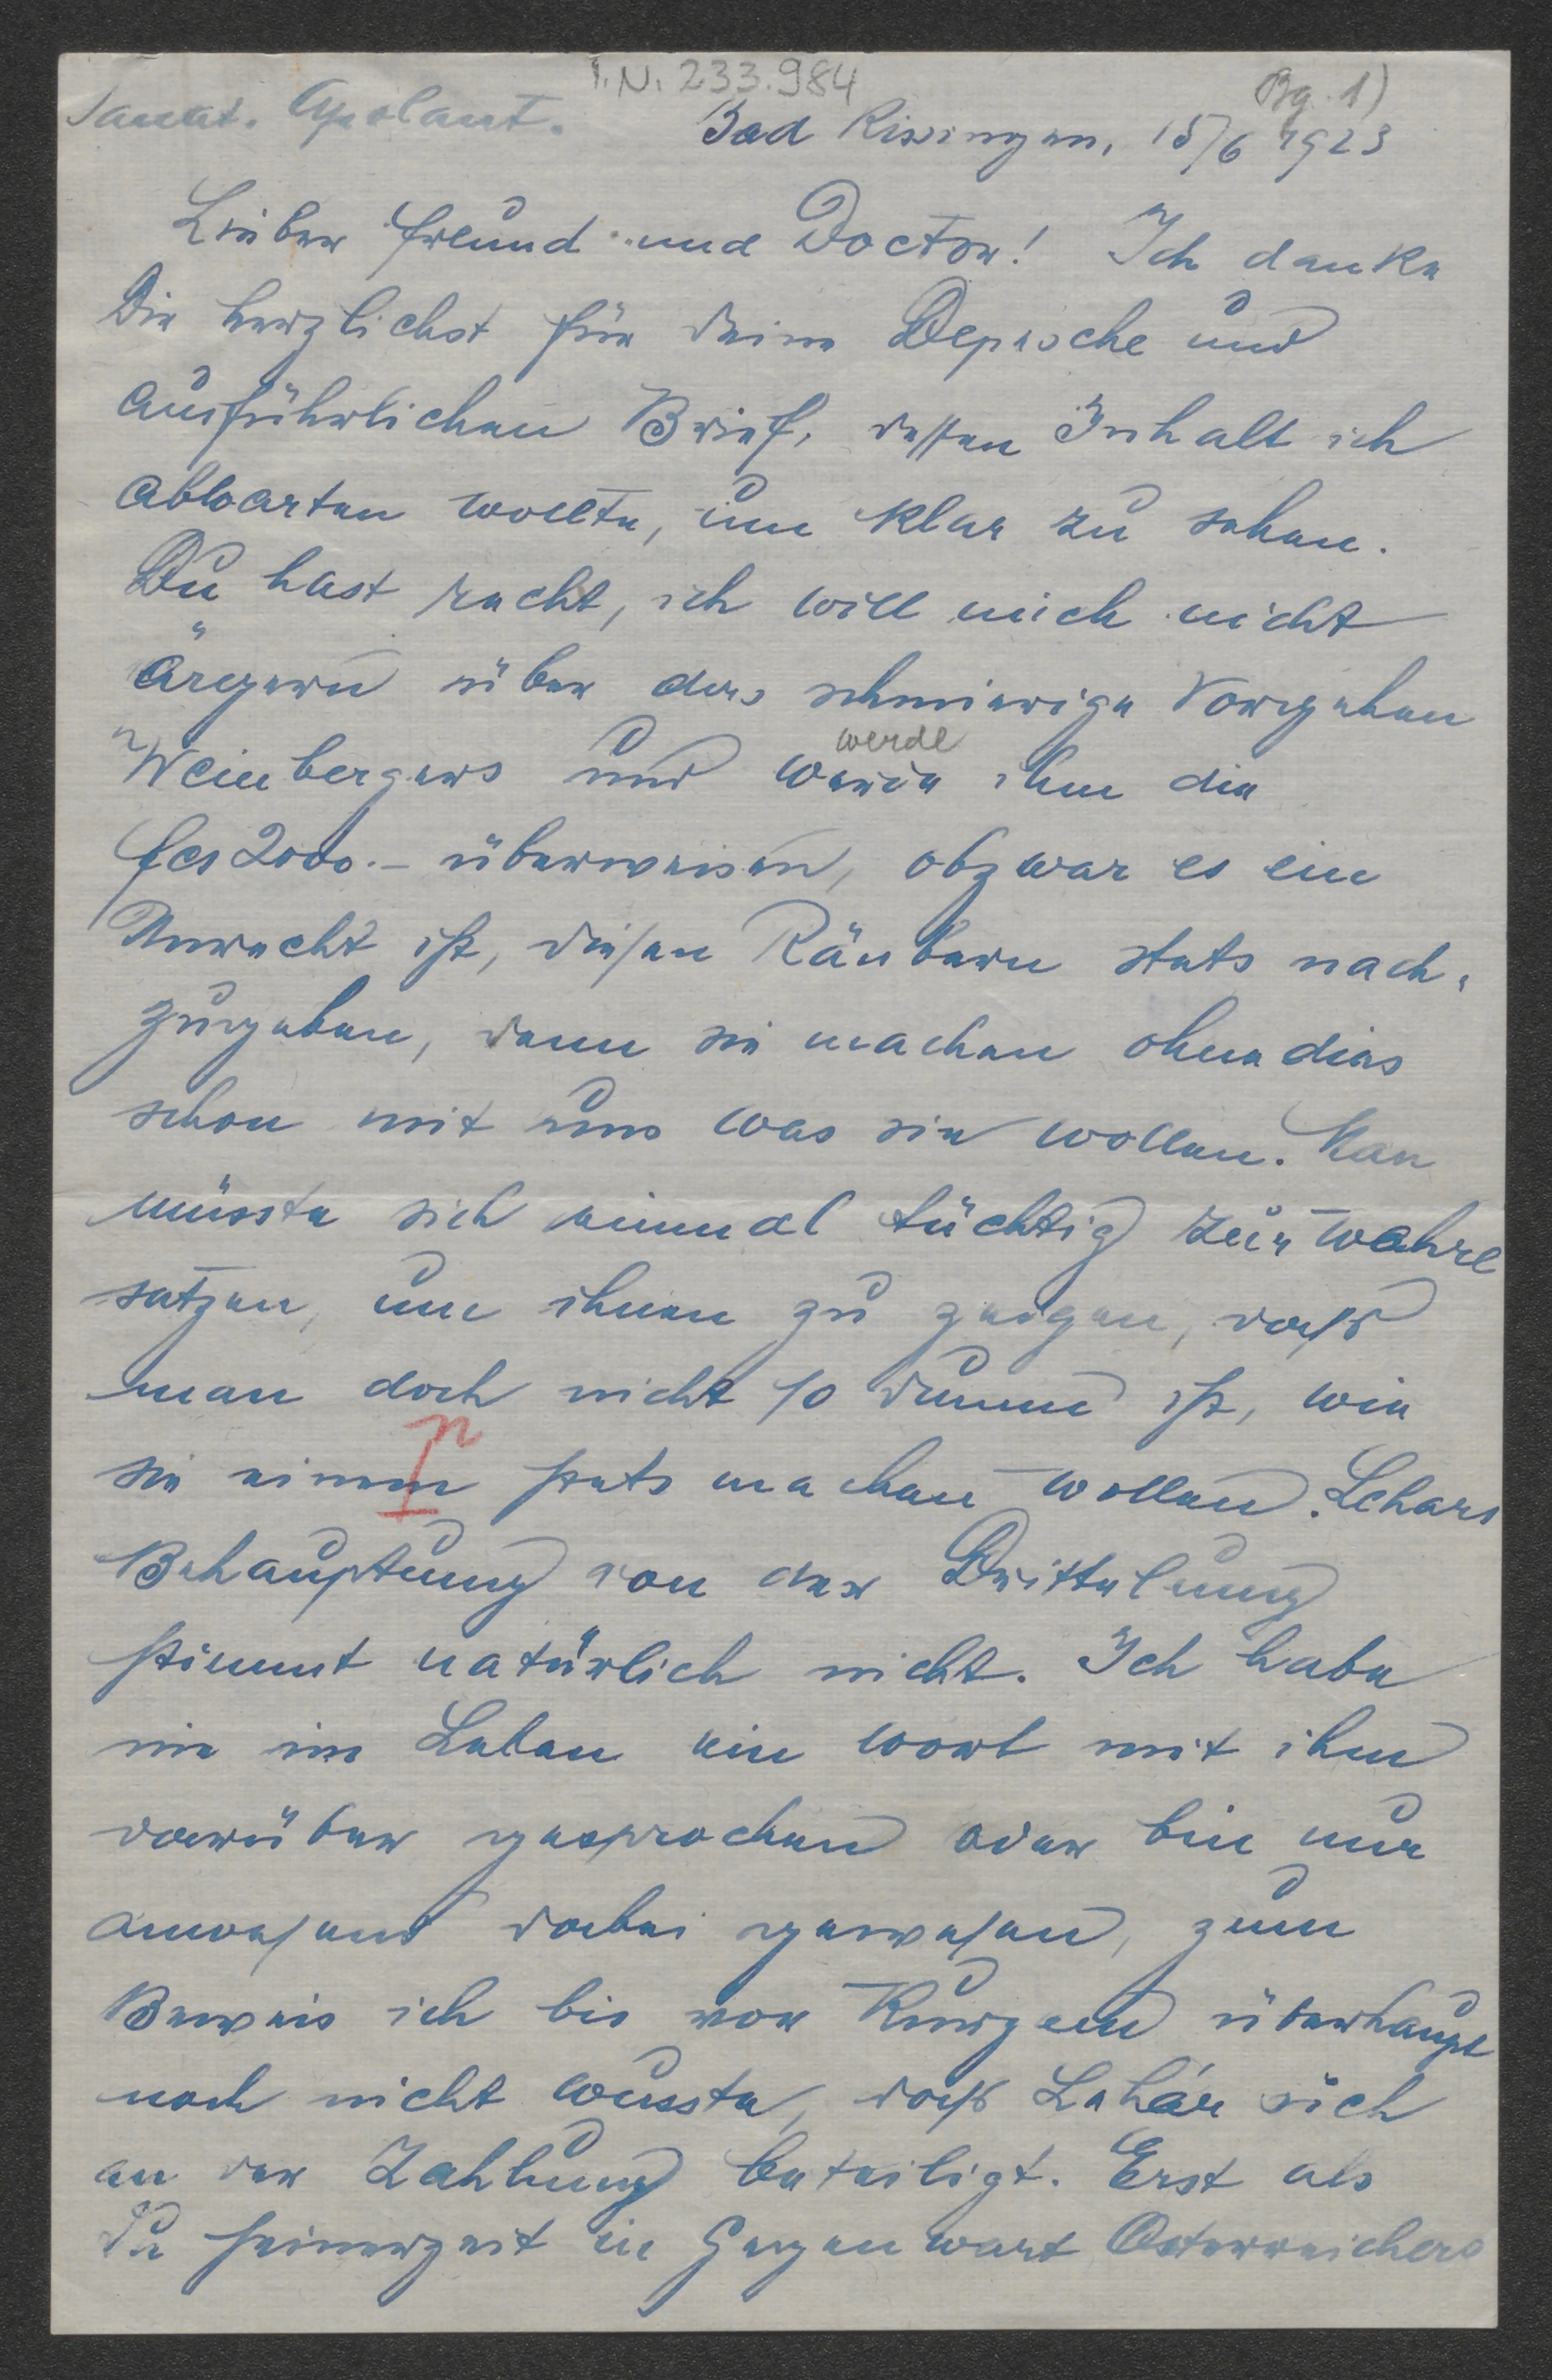 I.N. 233.984
Bg. 1)
Sanat. Apolant.
Bad Kissingen, 15/6 1923
Lieber Freund und Doctor! Ich danke
Dir herzlichst für Deine Depesche und
ausführlichen Brief, dessen Inhalt ich
abwarten wollte, um klar zu sehen.
Du hast recht, ich will mich nicht
ärgern über das schmierige Vorgehen
werde
Weinbergers und werde ihm die
fcs 2000.- überweisen, obzwar es ein
Unrecht ist, diesen Räubern stets nach-
zugeben, denn sie machen ohnedies
schon mit uns was sie wollen. Man
müsste sich einmal tüchtig zur Wehre
setzen, um ihnen zu zeigen, daß
man doch nicht so dumm ist, wie
n
sie einem stets machen wollen. Lehars
Behauptung von der Drittelung
stimmt natürlich nicht. Ich habe
nie im Leben ein Wort mit ihm
darüber gesprochen oder bin nur
anwesend dabei gewesen, zum
Beweis ich bis vor Kurzem überhaupt
noch nicht wusste, daß Lehár sich
an der Zahlung beteiligt. Erst als
Du seinerzeit in Gegenwart Österreichers